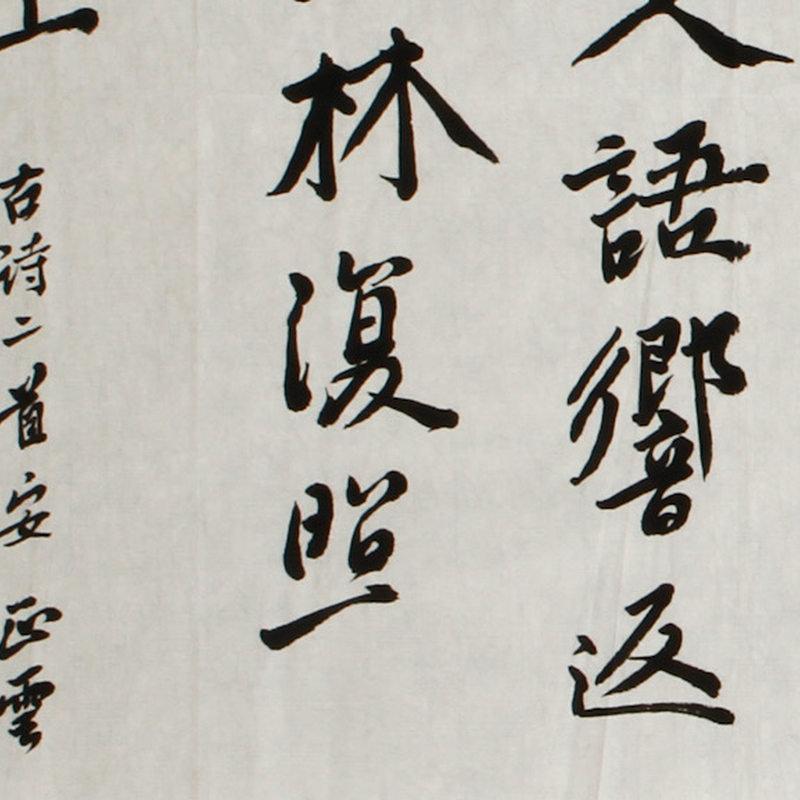 人語響返
林復照
上
古詩二首安正雲